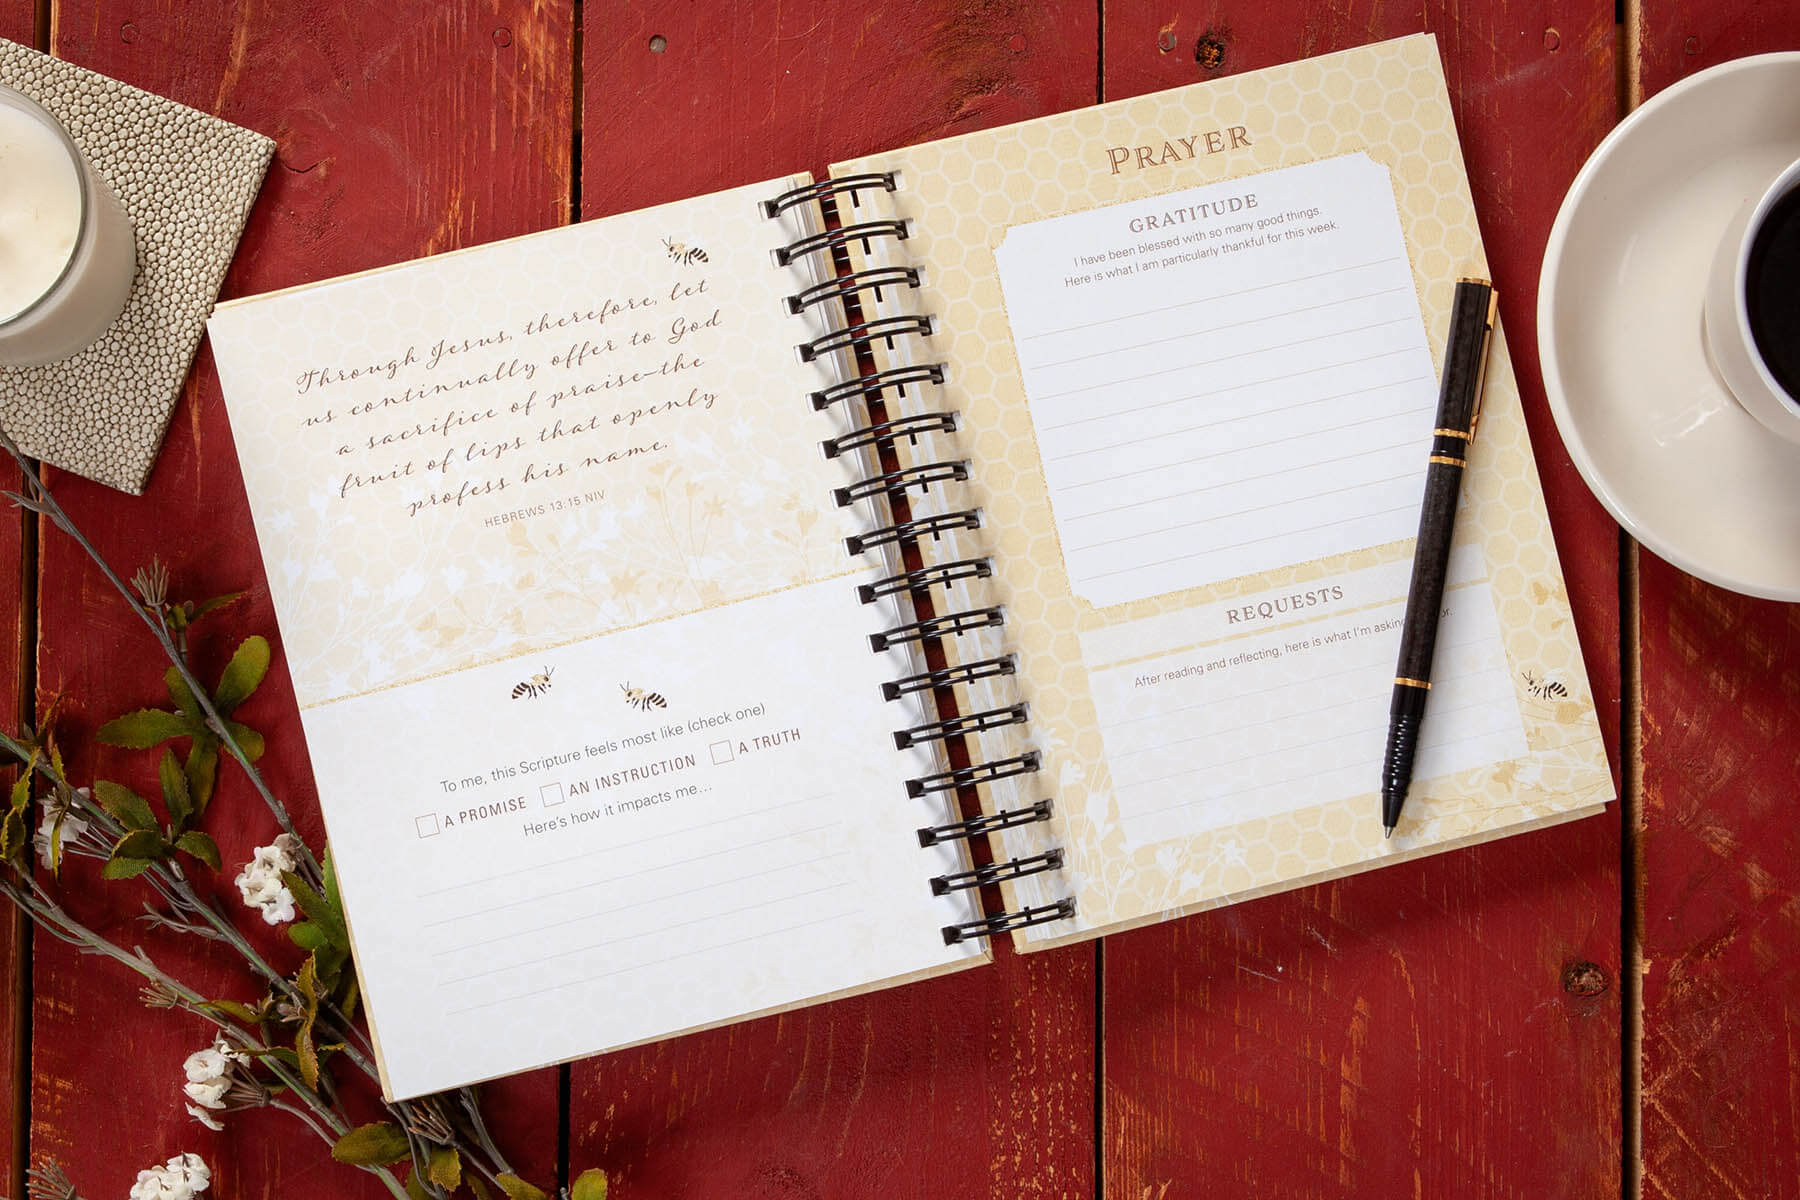 Through Jesus, therefore, let
us continually offer to God
a sacrifice of praise—the
fruit of lips that openly
profess his name.
HEBREWS 13:15 NIV
To me, this Scripture feels most like (check one)
A PROMISE AN INSTRUCTION A TRUTH
Here's how it impacts me...
PRAYER
GRATITUDE
I have been blessed with so many good things.
Here is what I am particularly thankful for this week.
REQUESTS
After reading and reflecting, here is what I'm